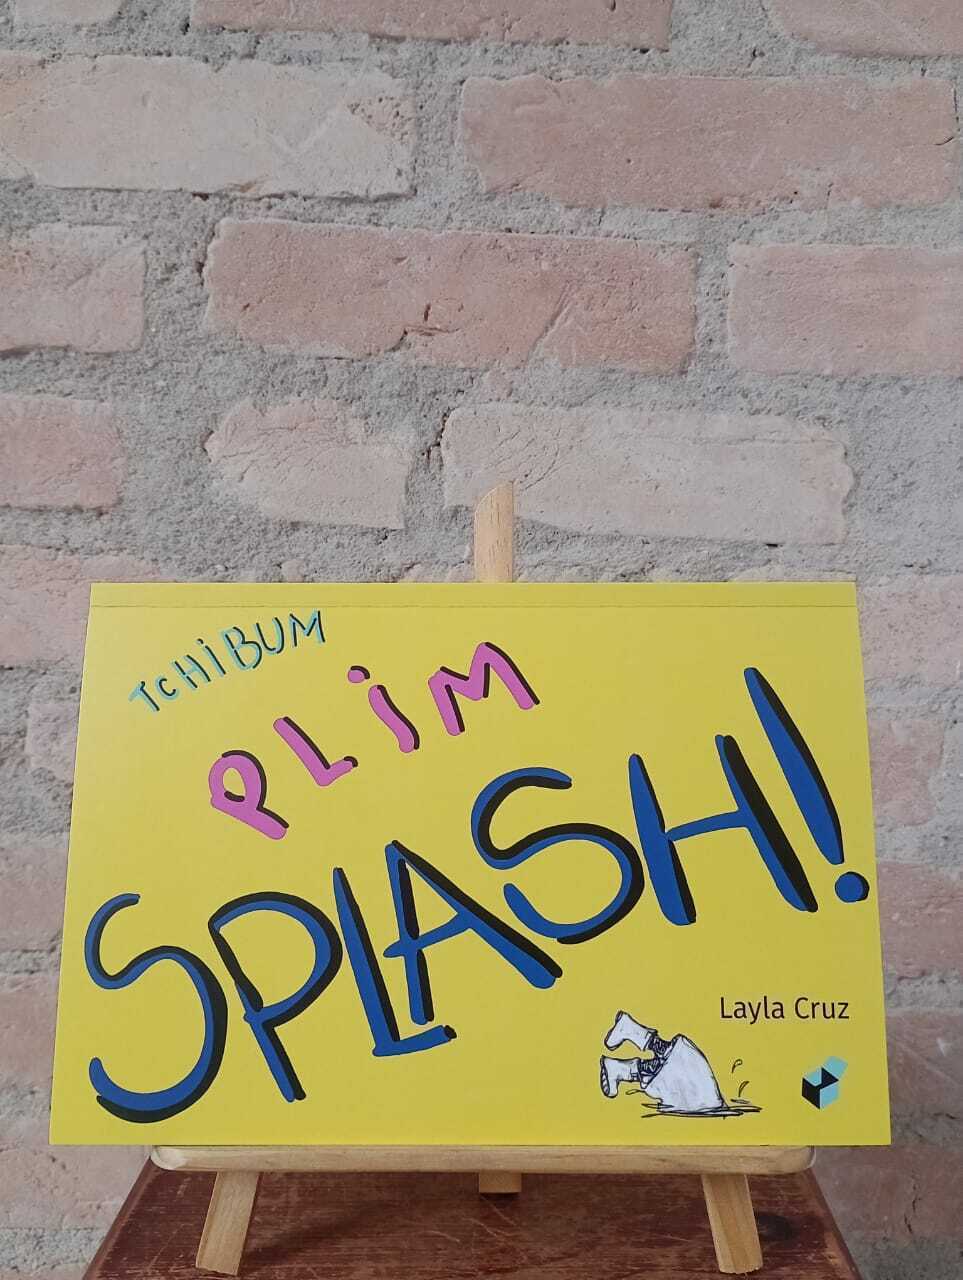 TCHiBUM
PLiM
SPLASH!
Layla Cruz